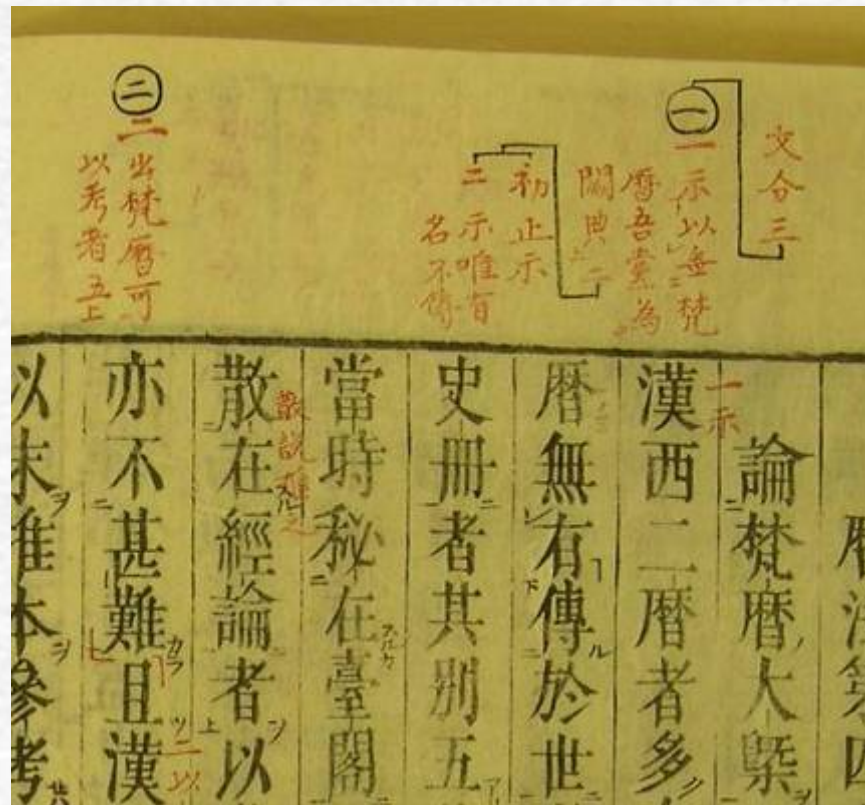 文分三
㊀
一示以無梵
暦吾黨為
闕典二
初止示
二示唯有
名不傳
㊁
二出梵暦可
以考者五上
論梵暦大槩
一示
漢西二暦者多
暦無有傳於世
史冊者其別五
當時秘在臺閣
散在經論者以
二以
亦不甚難且漢
以末推本參考